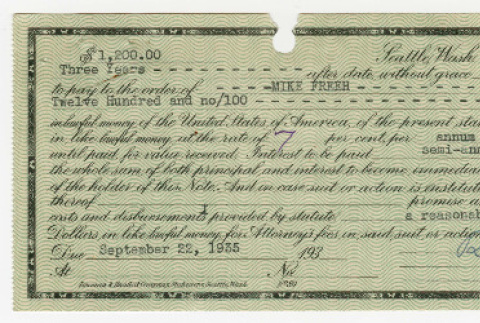 $ 1,200.00 Seattle, Wash.
Three Years after date, without grace
to pay to the order of MIKE FREEH
Twelve Hundred and no/100
in lawful money of the United States of America, of the present sta
in like lawful money at the rate of 7 per cent. per annum
until paid, for value received. Interest to be paid semi-ann
the whole sum of both principal and interest to become immedia
of the holder of this Note. And in case suit or action is institut
thereof promise a
costs and disbursements provided by statute a reasonab
Dollars in like lawful money for Attorneys fees in said suit or action
Due September 22, 1935 193
At No